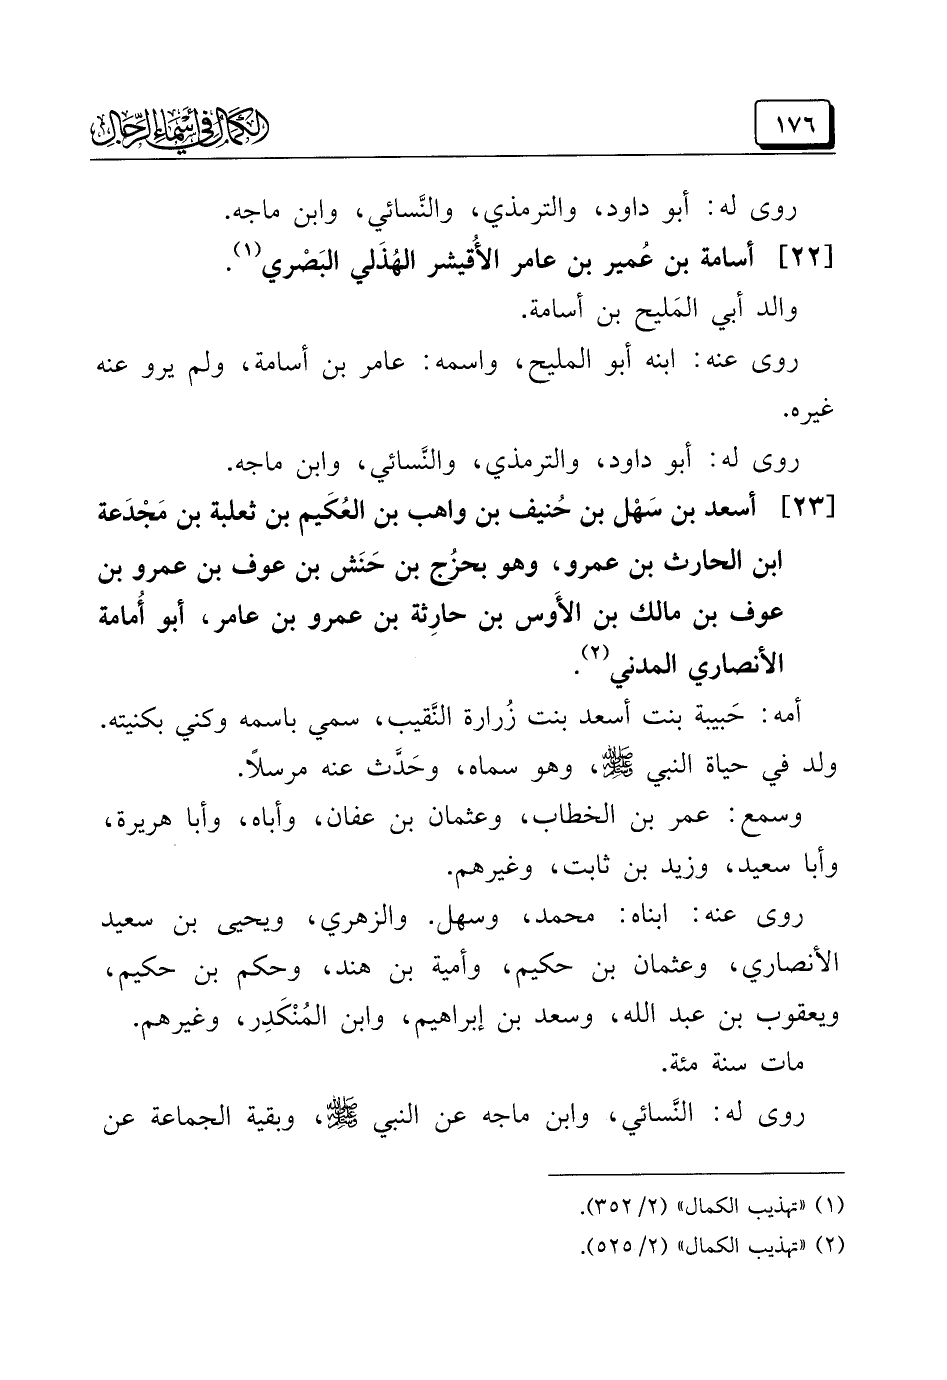 الكمال في أسماء الرجال
١٧٦
روى له: أبو داود، والترمذي، والنَّسائي، وابن ماجه.
[٢٢] أسامة بن عُمير بن عامر الأُقيشر الهُذَلي البَصْري(١).
والد أبي المَليح بن أسامة.
روى عنه: ابنه أبو المليح، واسمه: عامر بن أسامة، ولم يرو عنه
غيره.
روى له: أبو داود، والترمذي، والنَّسائي، وابن ماجه.
[٢٣] أسعد بن سَهْل بن حُنيف بن واهب بن العُكَيم بن ثعلبة بن مَجْدَعة
ابن الحارث بن عمرو، وهو بحزُج بن حَنَش بن عوف بن عمرو بن
عوف بن مالك بن الأَوس بن حارِثة بن عمرو بن عامر، أبو أُمامة
الأنصاري المدني(٢).
أمه: حَبيبة بنت أسعد بنت زُرارة النَّقيب، سمي باسمه وكني بكنيته.
ولد في حياة النبي ﷺ، وهو سماه، وحَدَّث عنه مرسلاً.
وسمع: عمر بن الخطاب، وعثمان بن عفان، وأباه، وأبا هريرة،
وأبا سعيد، وزيد بن ثابت، وغيرهم.
روى عنه: ابناه: محمد، وسهل. والزهري، ويحيى بن سعيد
الأنصاري، وعثمان بن حكيم، وأمية بن هند، وحكم بن حكيم،
ويعقوب بن عبد الله، وسعد بن إبراهيم، وابن المُنْكَدِر، وغيرهم.
مات سنة مئة.
روى له: النَّسائي، وابن ماجه عن النبي ﷺ، وبقية الجماعة عن
(١) «تهذيب الكمال» (٢/ ٣٥٢).
(٢) «تهذيب الكمال» (٢/ ٥٢٥).